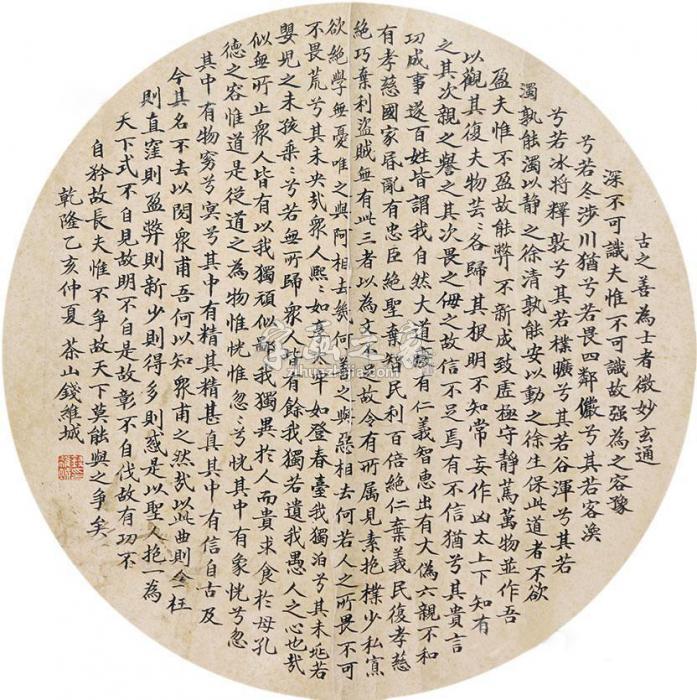 古之善為士者微妙玄通
深不可識夫惟不可識故强為之容豫
兮若冬涉川猶兮若畏四鄰儼兮其若容渙
兮若冰將釋敦兮其若樸曠兮其若谷渾兮其若
濁孰能濁以静之徐清孰能安以動之徐生保此道者不欲
盈夫惟不盈故能弊不新成致虛極守静篤萬物並作吾
以觀其復夫物芸〻各歸其根明不知常妄作凶太上下知有
之其次親之譽之其次畏之侮之故信不足焉有不信猶兮其貴言
功成事遂百姓皆謂我自然大道有仁義智惠出有大偽六親不和
有孝慈國家昏亂有忠臣絕聖棄智民利百倍絕仁棄義民復孝慈
絕巧棄利盜賊無有此三者以為文足故令有所属見素抱樸少私寡
欲絕學無憂唯之與阿相去幾何之與惡相去何若人之所畏不可
不畏荒兮其未央哉衆人熙〻如牢如登春臺我獨泊兮其未兆若
嬰児之未孩乘〻兮若無所歸衆皆有餘我獨若遺我愚人之心也哉
似無所止衆人皆有以我獨頑似我獨異於人而貴求食於母孔
德之容惟道是從道之為物惟恍惟忽〻兮恍其中有象恍兮忽
其中有物窈兮冥兮其中有精其精甚真其中有信自古及
今其名不去以閱衆甫吾何以知衆甫之然哉以此曲則全枉
則直窪則盈弊則新少則得多則惑是以聖人抱一為
天下式不自見故明不自是故彰不自伐故有功不
自矜故長夫惟不爭故天下莫能與之爭矣
乾隆乙亥仲夏 茶山錢維城
字画之家
zihunzhijia.com